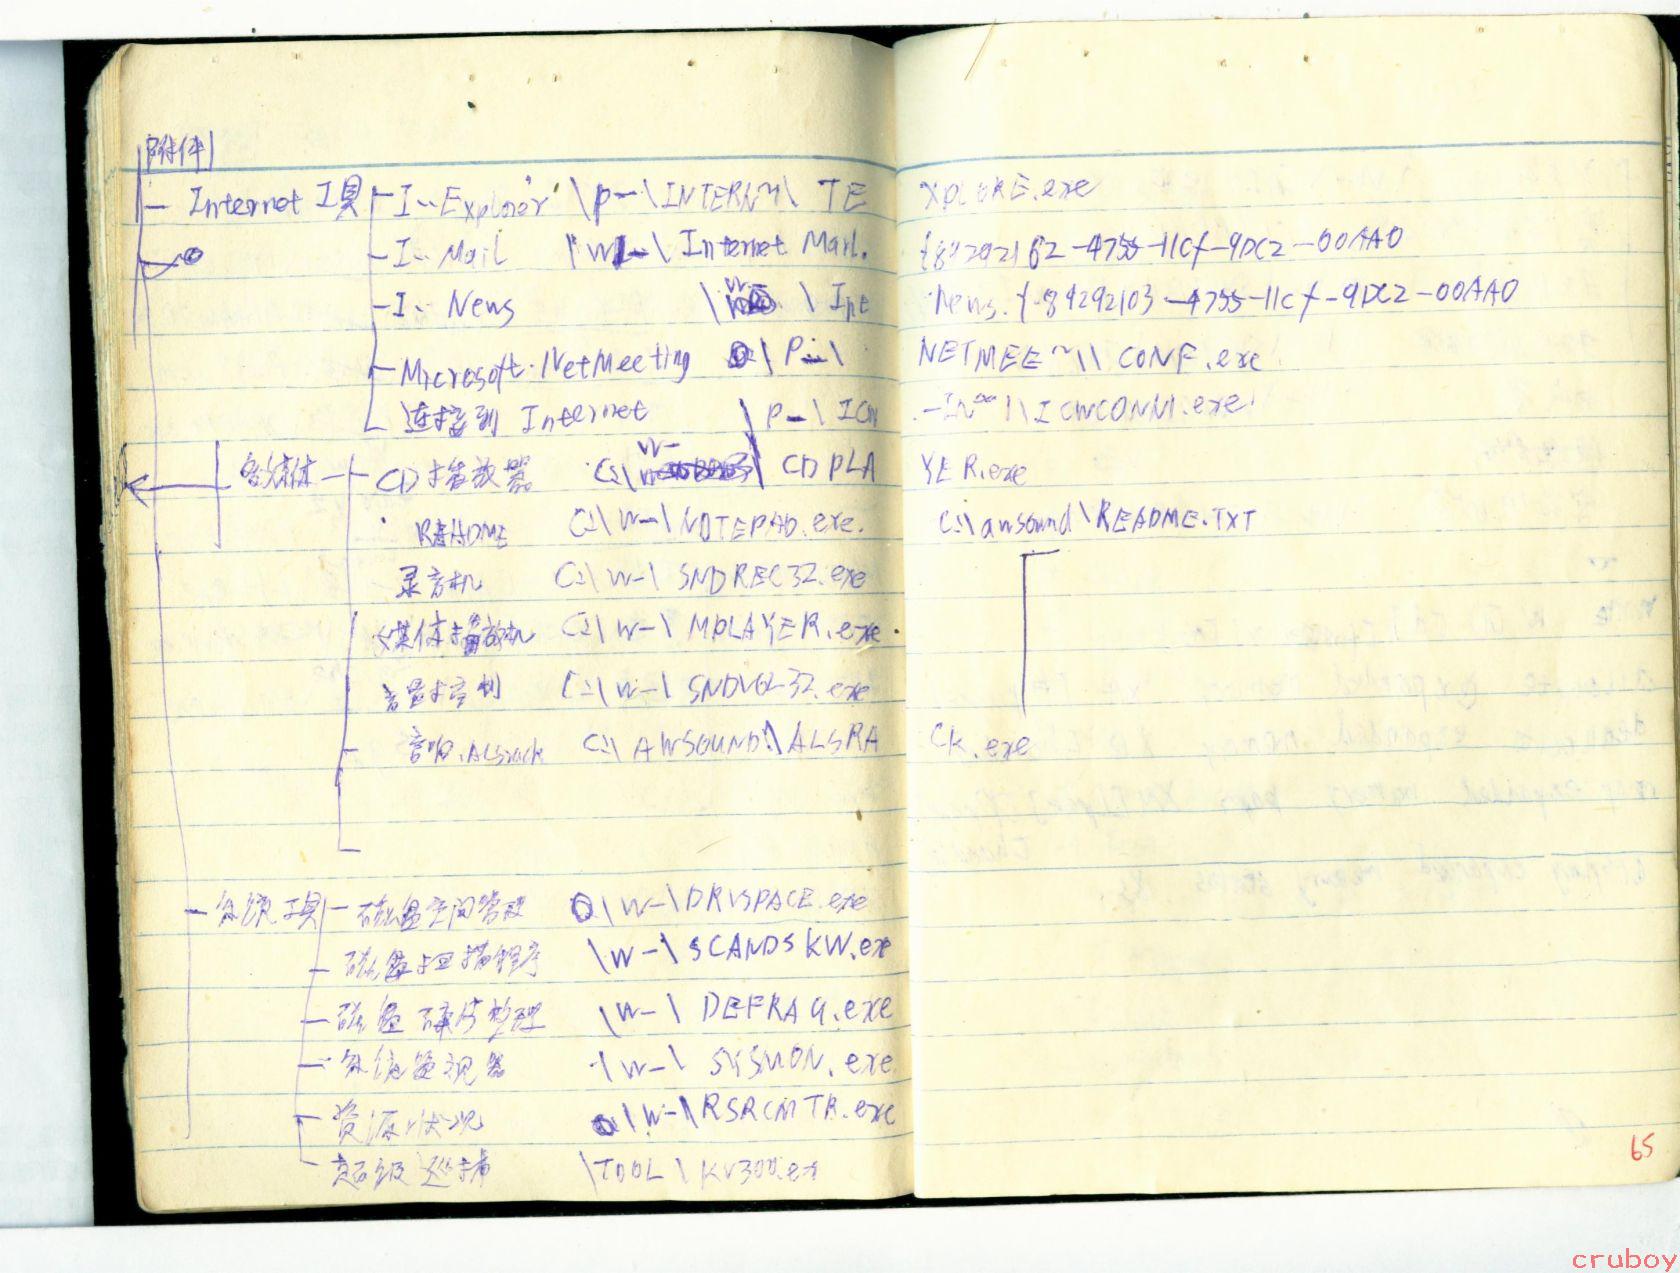 附件
Internet 工具 I-- Explorer \P-\INTERN~1\ IEXPLORE.exe
I-- Mail \W-\ Internet Mail. {89292162-4755-11cf-9DC2-00AA0
I-- News \W-\ Ine News. {-89292103-4755-11cf-9DC2-00AA0
Microsoft.NetMeeting \P-\ NETMEE~1\ CONF.exe
连接到 Internet \P-\ICW-IN~1\ICWCONN1.exe
多媒体 CD播放器 C:\W-\ CDPLAYER.exe
README C:\W-\NOTEPAD.exe. C:\awsound\README.TXT
录音机 C:\W-\ SNDREC32.exe
媒体播放机 C:\W-\ MPLAYER.exe.
音量控制 C:\W-\ SNDVOL32.exe
音响.ALSrack C:\ AWSOUND\ALSRACK.exe
系统工具 磁盘空间管理 \W-\DRVSPACE.exe
磁盘扫描程序 \W-\SCANDSKW.exe
磁盘碎片整理 \W-\ DEFRAG.exe
系统监视器 \W-\ SYSMON.exe
资源状况 \W-\RSRCMTR.exe
超级巡捕 \TOOL\KV300.ex
65
cruboy